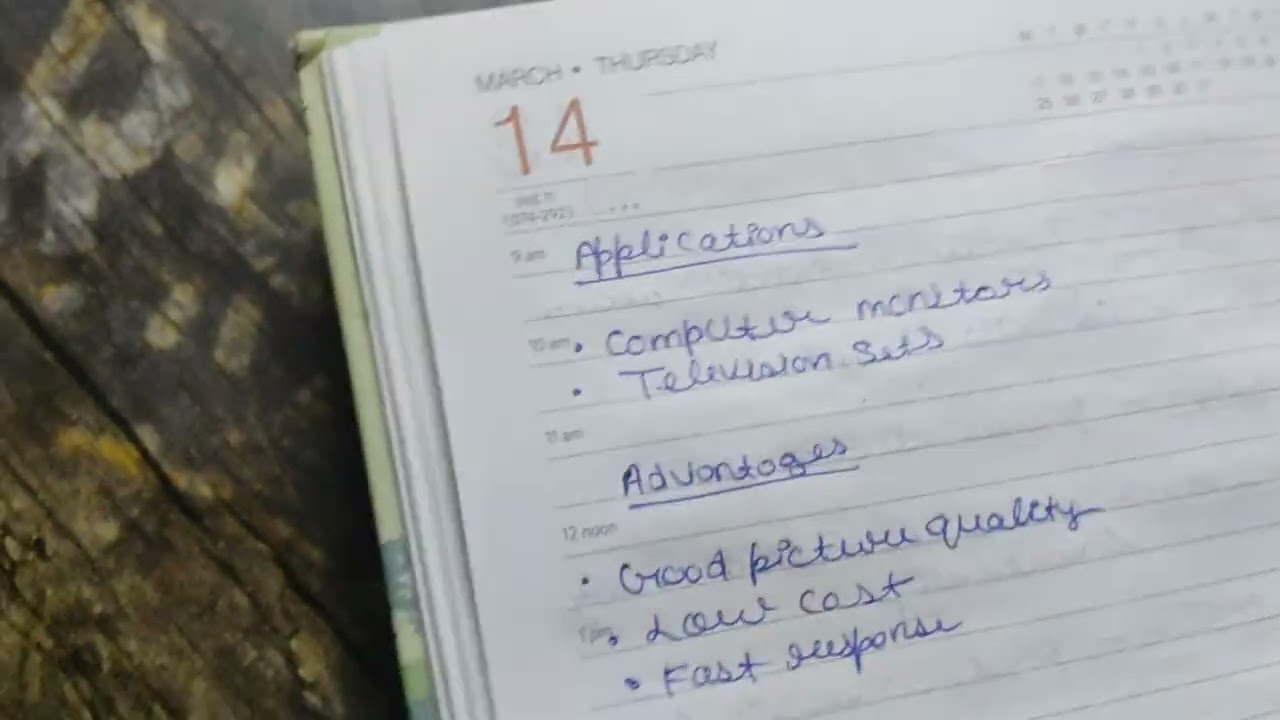 MARCH • THURSDAY
14
9 am
Applications
10 am
• Computer monitors
• Television Sets
11 am
Advantages
12 noon
• Good picture quality
1 pm
• Low cost
• Fast response